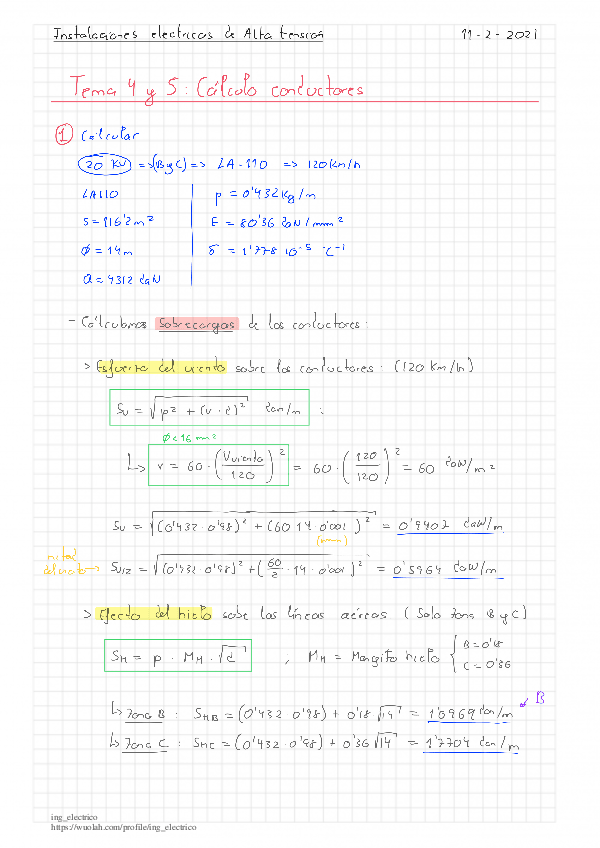 Instalaciones electricas de Alta tensión 11-2-2021
Tema 4 y 5: Cálculo conductores
1 Calcular
20 KV => (B y C) => LA-110 => 120 Km/h
LA110
S = 116'2 m²
φ = 14 m
Q = 4312 daN
p = 0'432 kg/m
E = 80'36 daN/mm²
δ = 1'778 10⁻⁵ °C⁻¹
- Cálculamos Sobrecargas de los conductores:
> Esfuerzo del viento sobre los conductores: (120 Km/h)
Sv = √(p² + (v·d)²) dan/m :
φ<16 mm²
↳ v = 60·(Vviento/120)² = 60·(120/120)² = 60 daN/m²
Sv = √((0'432·0'98)² + (60·14·0'001)²) = 0'9402 daN/m
(mm)
mitad del viento → Sv/2 = √((0'432·0'98)² + (60/2·14·0'001)²) = 0'5964 daN/m
> Efecto del hielo sobe las líneas aéreas (Solo zona B y C)
SH = p · MH · √d , MH = Mangito hielo { B = 0'18
C = 0'36
↳ Zona B : SHB = (0'432·0'98) + 0'18 √14 = 1'0969 dan/m B
↳ Zona C : SHC = (0'432·0'98) + 0'36 √14 = 1'7704 dan/m
ing_electrico
https://wuolah.com/profile/ing_electrico